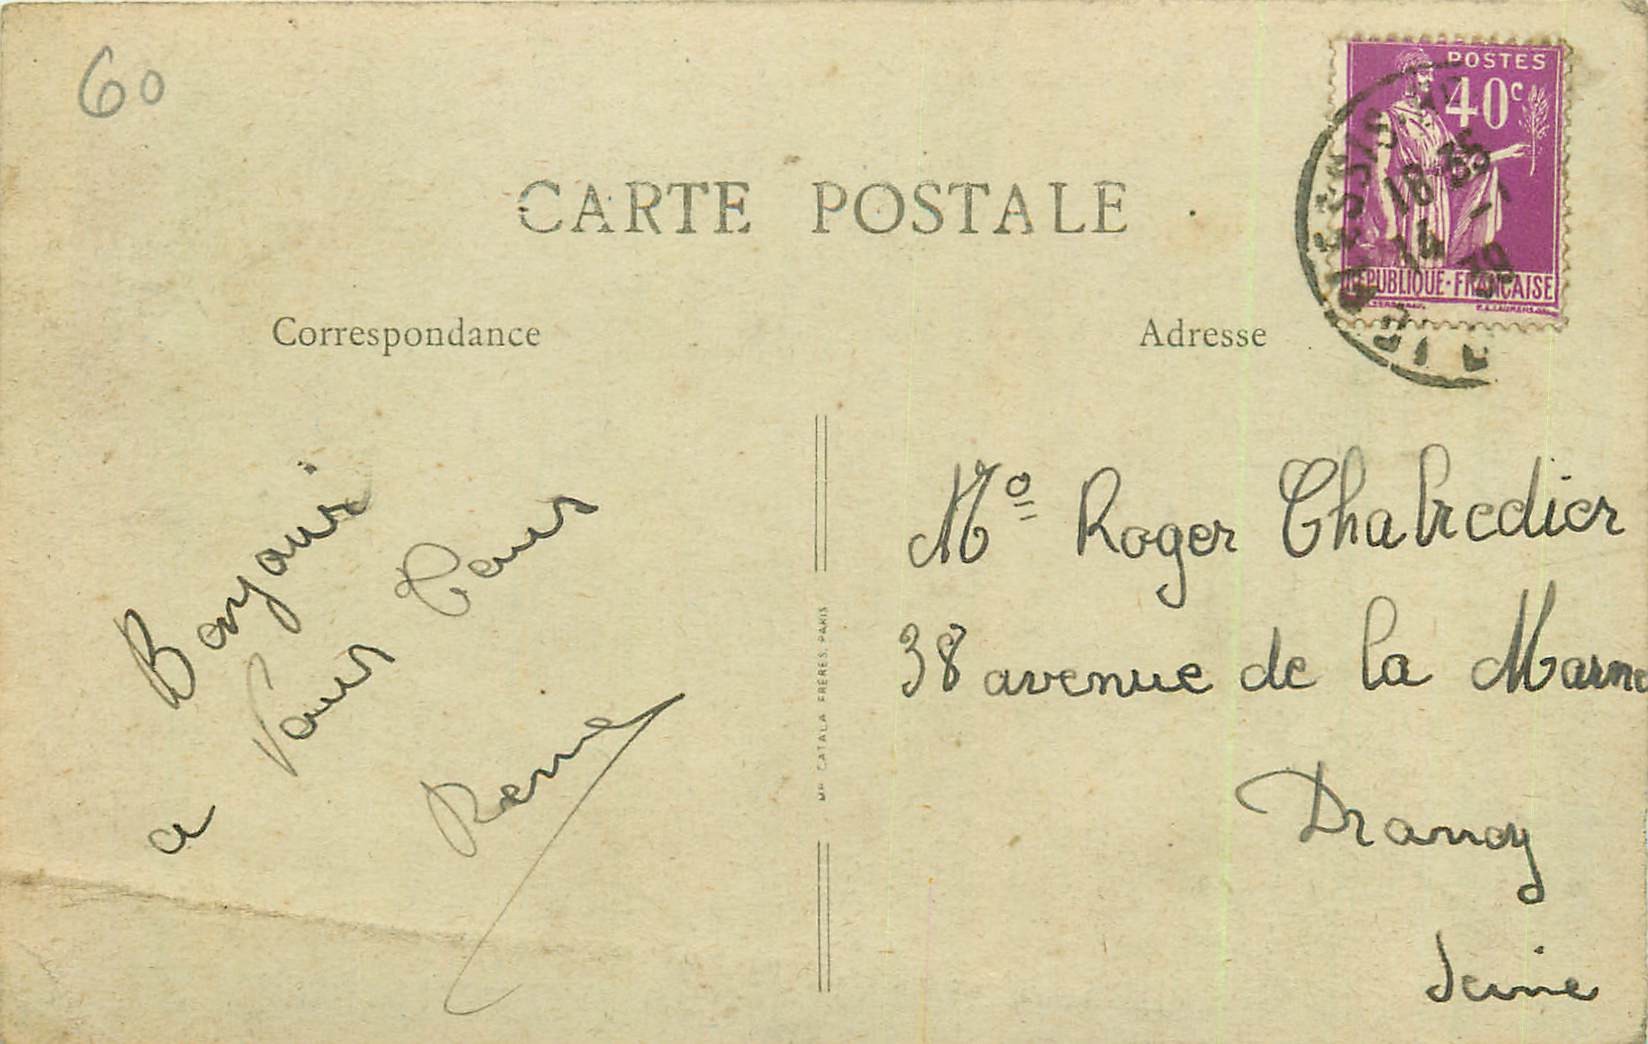 60
CARTE POSTALE
POSTES
40c
RÉPUBLIQUE-FRANÇAISE
18 35
14 -1
39
Correspondance
Adresse
Bonjour
a Vous Tous
René
IMP. CATALA FRÈRES, PARIS
Mo Roger Chatredier
38 avenue de la Marne
Drancy
Seine